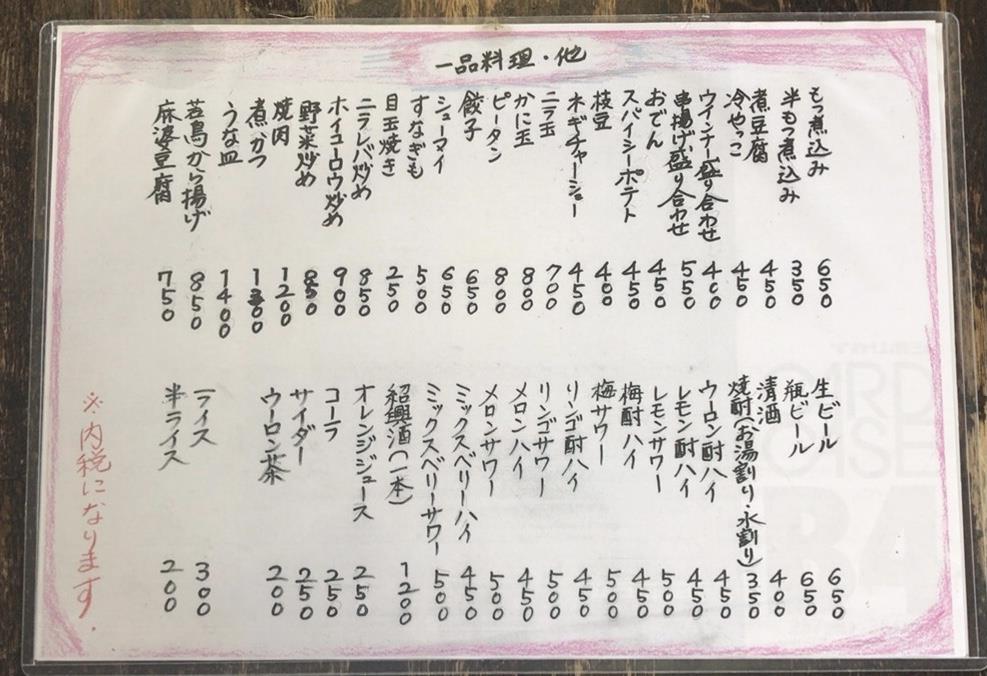 一品料理・他
もつ煮込み 650
半もつ煮込み 350
煮豆腐 450
冷やっこ 450
ウインナー盛り合わせ 400
串揚げ盛り合わせ 550
おでん 450
スパイシーポテト 450
枝豆 400
ネギチャーシュー 450
ニラ玉 700
かに玉 800
ピータン 800
餃子 650
シューマイ 650
すなぎも 500
目玉焼き 250
ニラレバ炒め 850
ホイコーロウ炒め 900
野菜炒め 850
焼肉 1200
煮かつ 1300
うな皿 1400
若鳥から揚げ 850
麻婆豆腐 750
生ビール 650
瓶ビール 650
清酒 400
焼酎(お湯割り・水割り) 350
ウーロン酎ハイ 450
レモン酎ハイ 450
レモンサワー 500
梅酎ハイ 450
梅サワー 500
リンゴ酎ハイ 450
リンゴサワー 500
メロンハイ 450
メロンサワー 500
ミックスベリーハイ 450
ミックスベリーサワー 500
紹興酒(一本) 1200
オレンジジュース 250
コーラ 250
サイダー 250
ウーロン茶 200
ライス 300
半ライス 200
※内税になります.